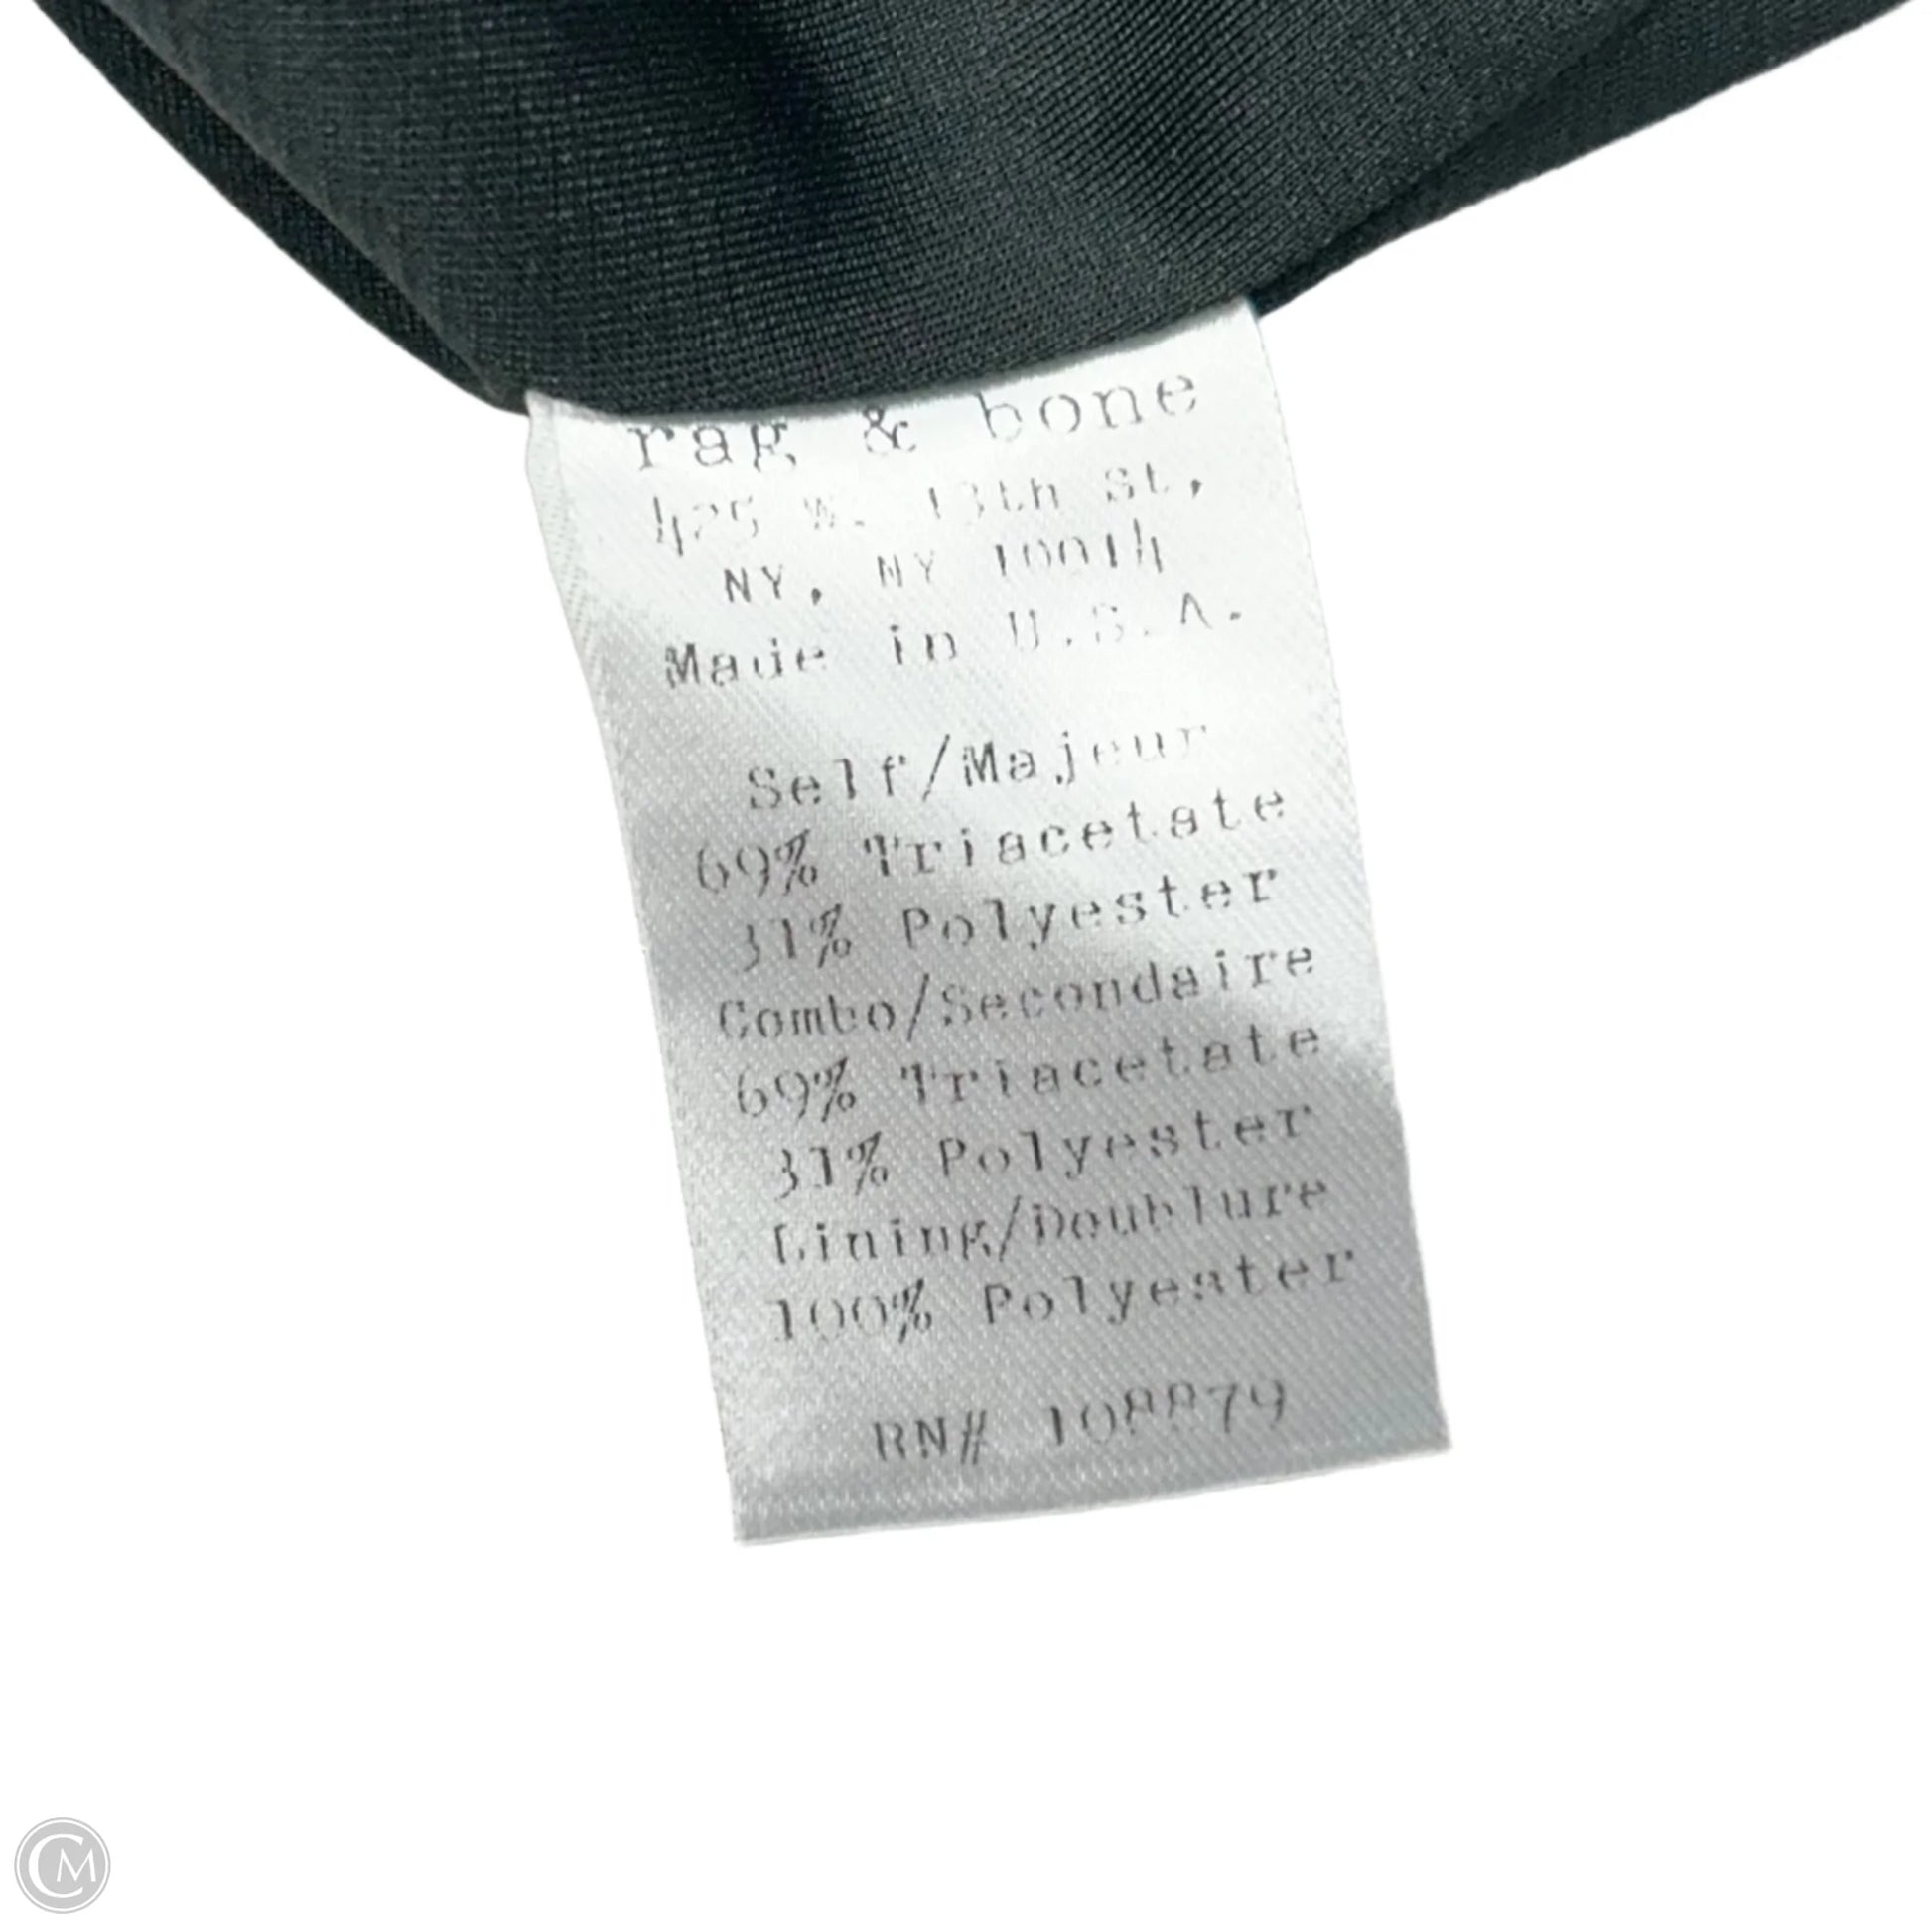 rag & bone
425 W. 13th St,
NY, NY 10014
Made in U.S.A.
Self/Majeur
69% Triacetate
31% Polyester
Combo/Secondaire
69% Triacetate
31% Polyester
Lining/Doublure
100% Polyester
RN# 108879
CM